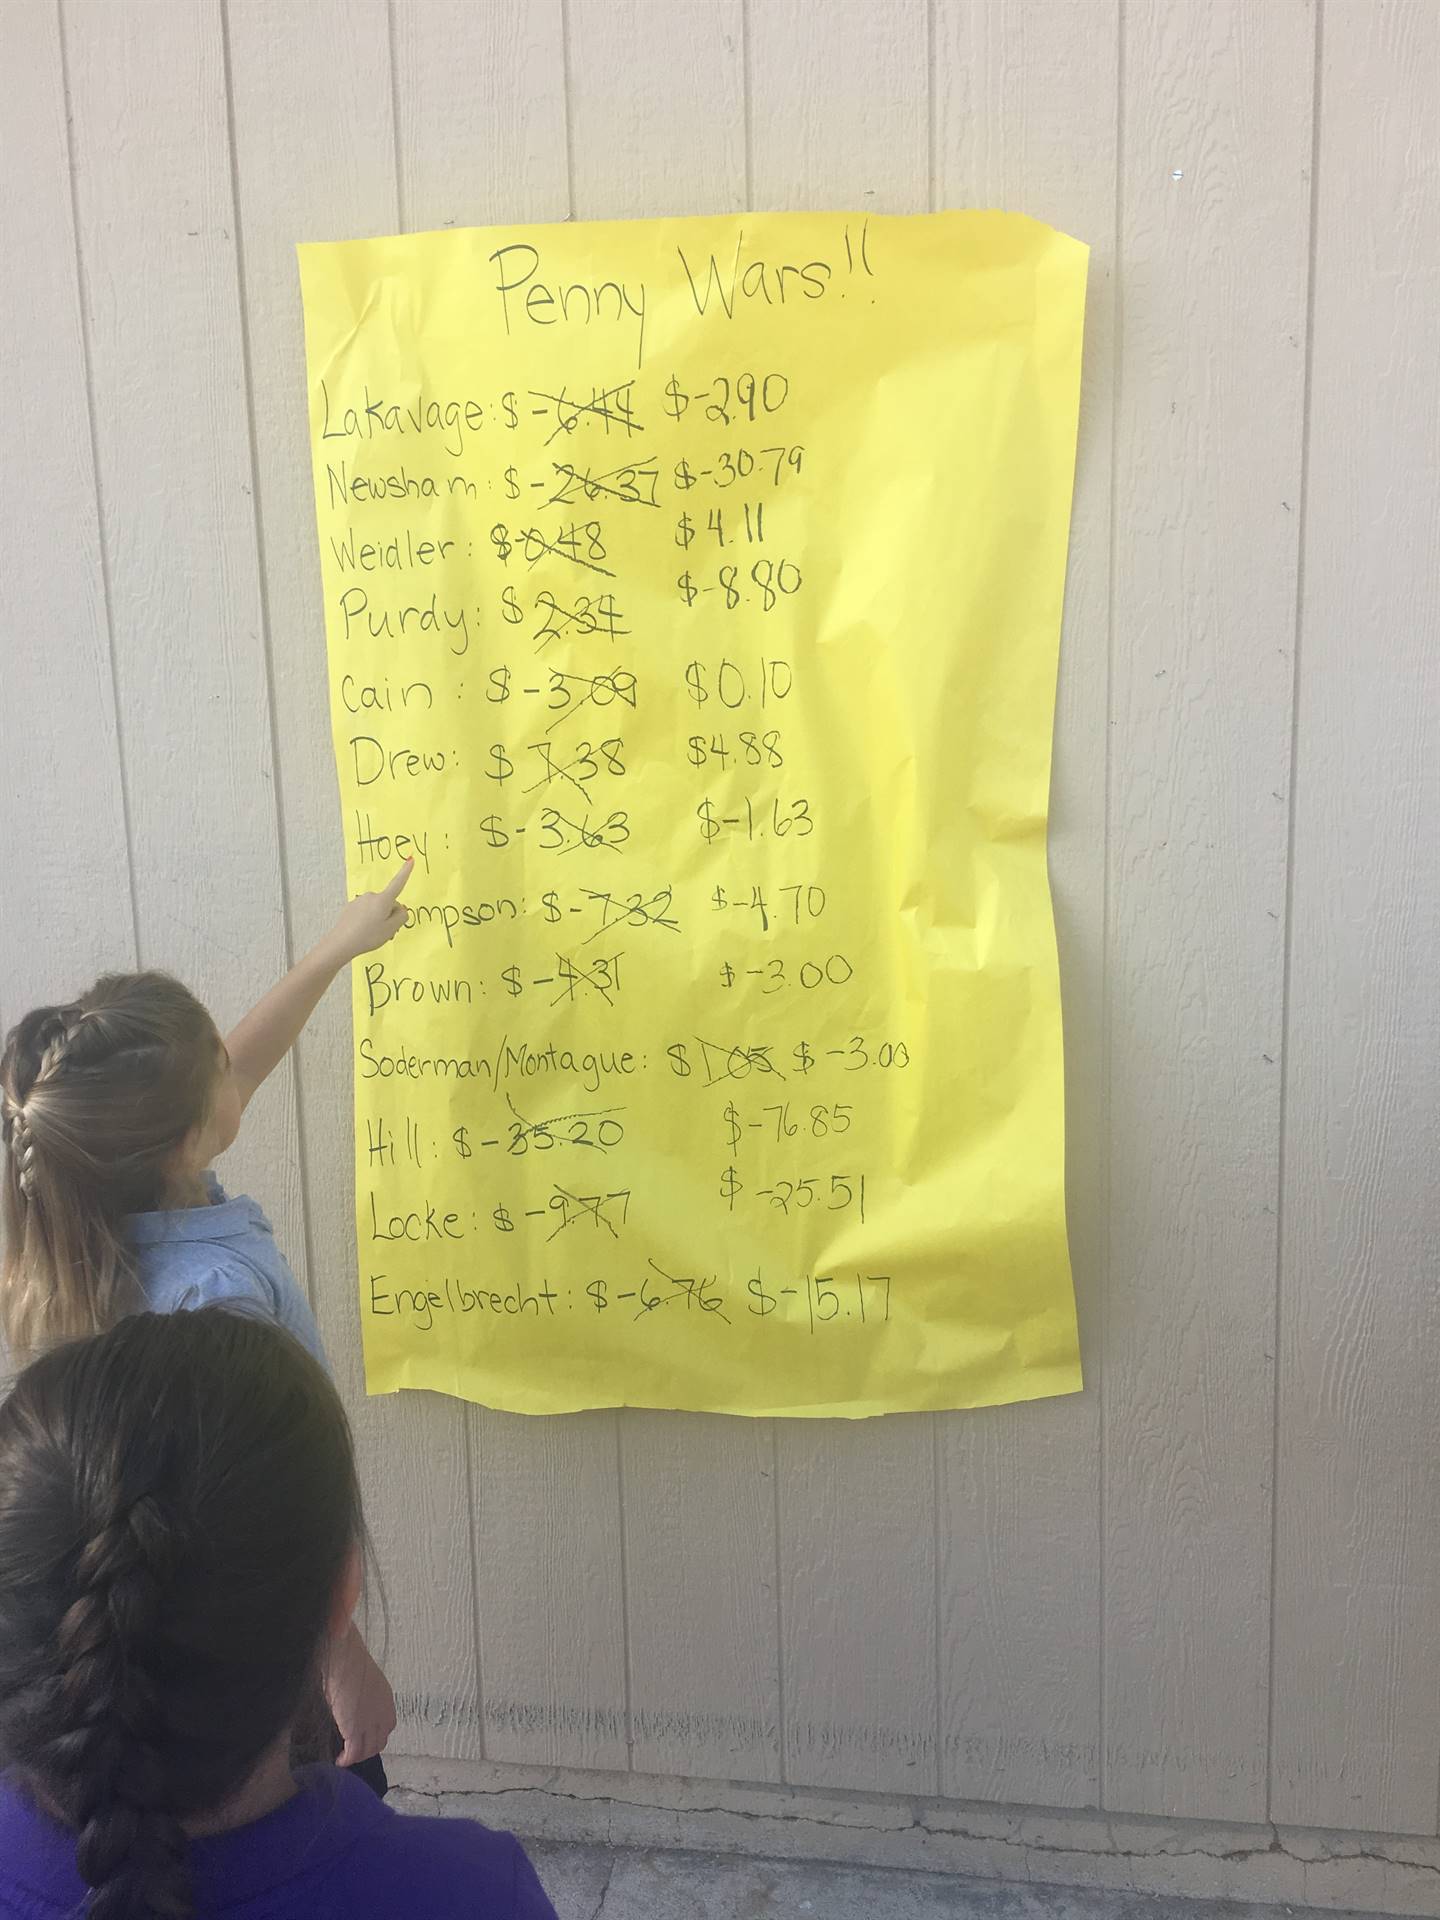 Penny Wars!!
Lakavage: $ -6.44 $-2.90
Newsham: $ -26.37 $-30.79
Weidler: $0.48 $4.11
Purdy: $ 2.34 $-8.80
Cain : $ -3.09 $0.10
Drew: $ 7.38 $4.88
Hoey: $ -3.63 $-1.63
ompson: $ -7.32 $-4.70
Brown: $ -4.31 $-3.00
Soderman/Montague: $1.05 $ -3.00
Hill: $ -35.20 $-76.85
Locke: $ -9.77 $ -25.51
Engelbrecht: $ -6.76 $-15.17